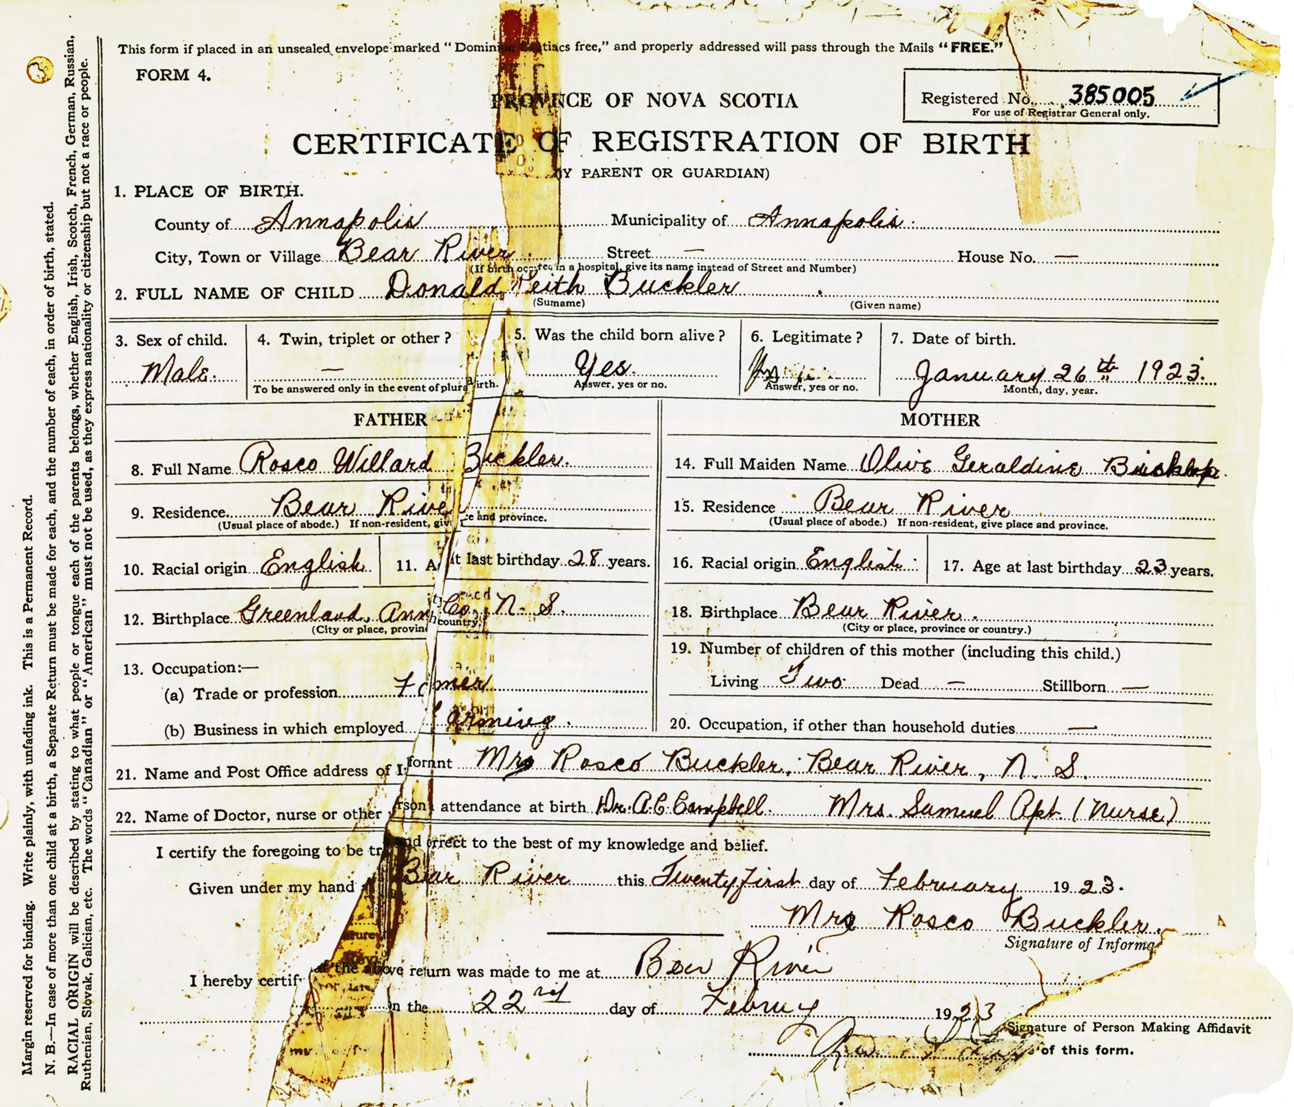 This form if placed in an unsealed envelope marked "Dominion Statistics free," and properly addressed will pass through the Mails "FREE."
FORM 4.
PROVINCE OF NOVA SCOTIA
Registered No. 385005
For use of Registrar General only.
CERTIFICATE OF REGISTRATION OF BIRTH
(BY PARENT OR GUARDIAN)
1. PLACE OF BIRTH.
County of Annapolis Municipality of Annapolis
City, Town or Village Bear River Street — House No. —
(If birth occurred in a hospital, give its name instead of Street and Number)
2. FULL NAME OF CHILD Donald Keith Buckler
(Surname) (Given name)
3. Sex of child. Male.
4. Twin, triplet or other? —
To be answered only in the event of plural birth.
5. Was the child born alive? Yes.
Answer, yes or no.
6. Legitimate?
Answer, yes or no.
7. Date of birth.
January 26th 1923.
Month, day, year.
FATHER
8. Full Name Rosco Willard Buckler.
9. Residence Bear River
(Usual place of abode.) If non-resident, give place and province.
10. Racial origin English 11. Age at last birthday 28 years.
12. Birthplace Greenland, Ann Co. N. S.
(City or place, province or country.)
13. Occupation:—
(a) Trade or profession Farmer
(b) Business in which employed Farming.
MOTHER
14. Full Maiden Name Olive Geraldine
15. Residence Bear River
(Usual place of abode.) If non-resident, give place and province.
16. Racial origin English 17. Age at last birthday 23 years.
18. Birthplace Bear River.
(City or place, province or country.)
19. Number of children of this mother (including this child.)
Living Two Dead — Stillborn —
20. Occupation, if other than household duties —
21. Name and Post Office address of Informant Mrs Rosco Buckler, Bear River, N. S.
22. Name of Doctor, nurse or other person in attendance at birth Dr. A. C. Campbell Mrs. Samuel Apt. (Nurse)
I certify the foregoing to be true and correct to the best of my knowledge and belief.
Given under my hand at Bear River this Twenty first day of February 1923.
Mrs Rosco Buckler.
Signature of Informa
I hereby certif the above return was made to me at Bear River
on the 22nd day of Februy 1923
Signature of Person Making Affidavit
of this form.
Margin reserved for binding. Write plainly, with unfading ink. This is a Permanent Record.
N. B.—In case of more than one child at a birth, a Separate Return must be made for each, and the number of each, in order of birth, stated.
RACIAL ORIGIN will be described by stating to what people or tongue each of the parents belongs, whether English, Irish, Scotch, French, German, Russian,
Ruthenian, Slovak, Galician, etc. The words "Canadian" or "American" must not be used, as they express nationality or citizenship but not a race or people.
3